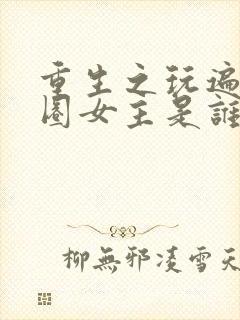 重生之玩遍
圈女主是誰
柳無邪凌雪天